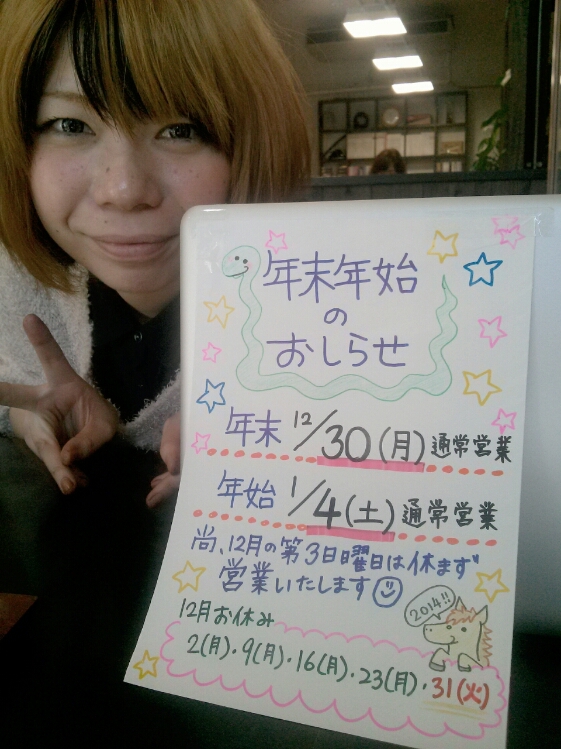 年末年始
の
おしらせ
年末 12/30(月)通常営業
年始 1/4(土)通常営業
尚、12月の第3日曜日は休まず
営業いたします
2014!!
12月お休み
2(月)・9(月)・16(月)・23(月)・31(火)